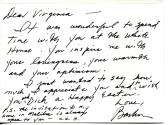 Dear Virginia -
It was wonderful to spend
time with you at the White
House. You inspire me with
your lovingness, your warmth
and your optimism.
I just wanted to say how
much I appreciate you and wish
you + Dick a Happy Easter.
Love,
Barbra
P.S.
home in Malibu is always
open to you